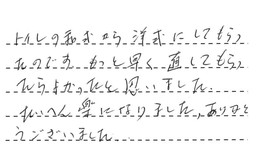 トイレの和式から洋式にしてもらっ
たのですが もっと早く直してもらっ
たらよかったと思いました。
たいへん楽になりました。ありがと
うございました